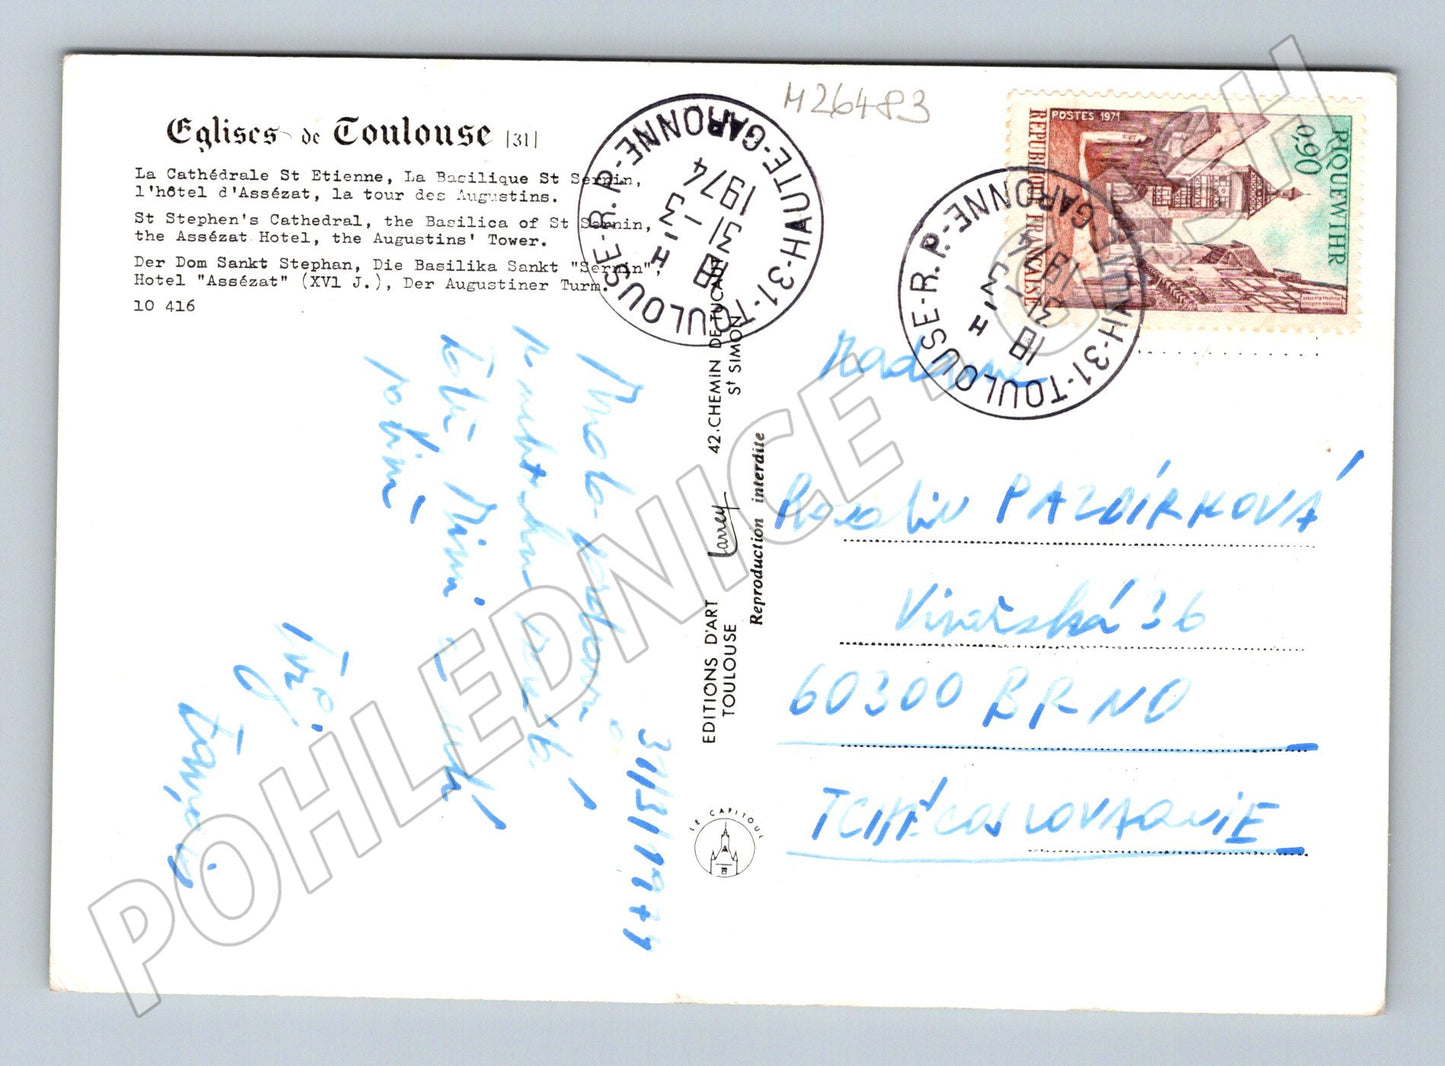 M26483
Eglises de Toulouse [31]
La Cathédrale St Etienne, La Basilique St Sernin,
l'hôtel d'Assézat, la tour des Augustins.
St Stephen's Cathedral, the Basilica of St Sernin,
the Assézat Hotel, the Augustins' Tower.
Der Dom Sankt Stephan, Die Basilika Sankt "Sernin",
Hotel "Assézat" (XVl J.), Der Augustiner Turm.
10 416
31-TOULOUSE-R.P.-HAUTE-GARONNE
18 H
31-5
1974
31-TOULOUSE-R.P.-HAUTE-GARONNE
18 H
31-5
1974
RIQUEWIHR
0,90
POSTES 1971
REPUBLIQUE FRANÇAISE
EDITIONS D'ART Larrey 42.CHEMIN DE TUCAUT
TOULOUSE St SIMON
Reproduction interdite
LE CAPITOUL
31/5/1974
Tvůj
Madame
PAZDÍRKOVÁ
Vinařská 36
60300 BRNO
TCHÉCOSLOVAQUIE
POHLEDNICE - CASH